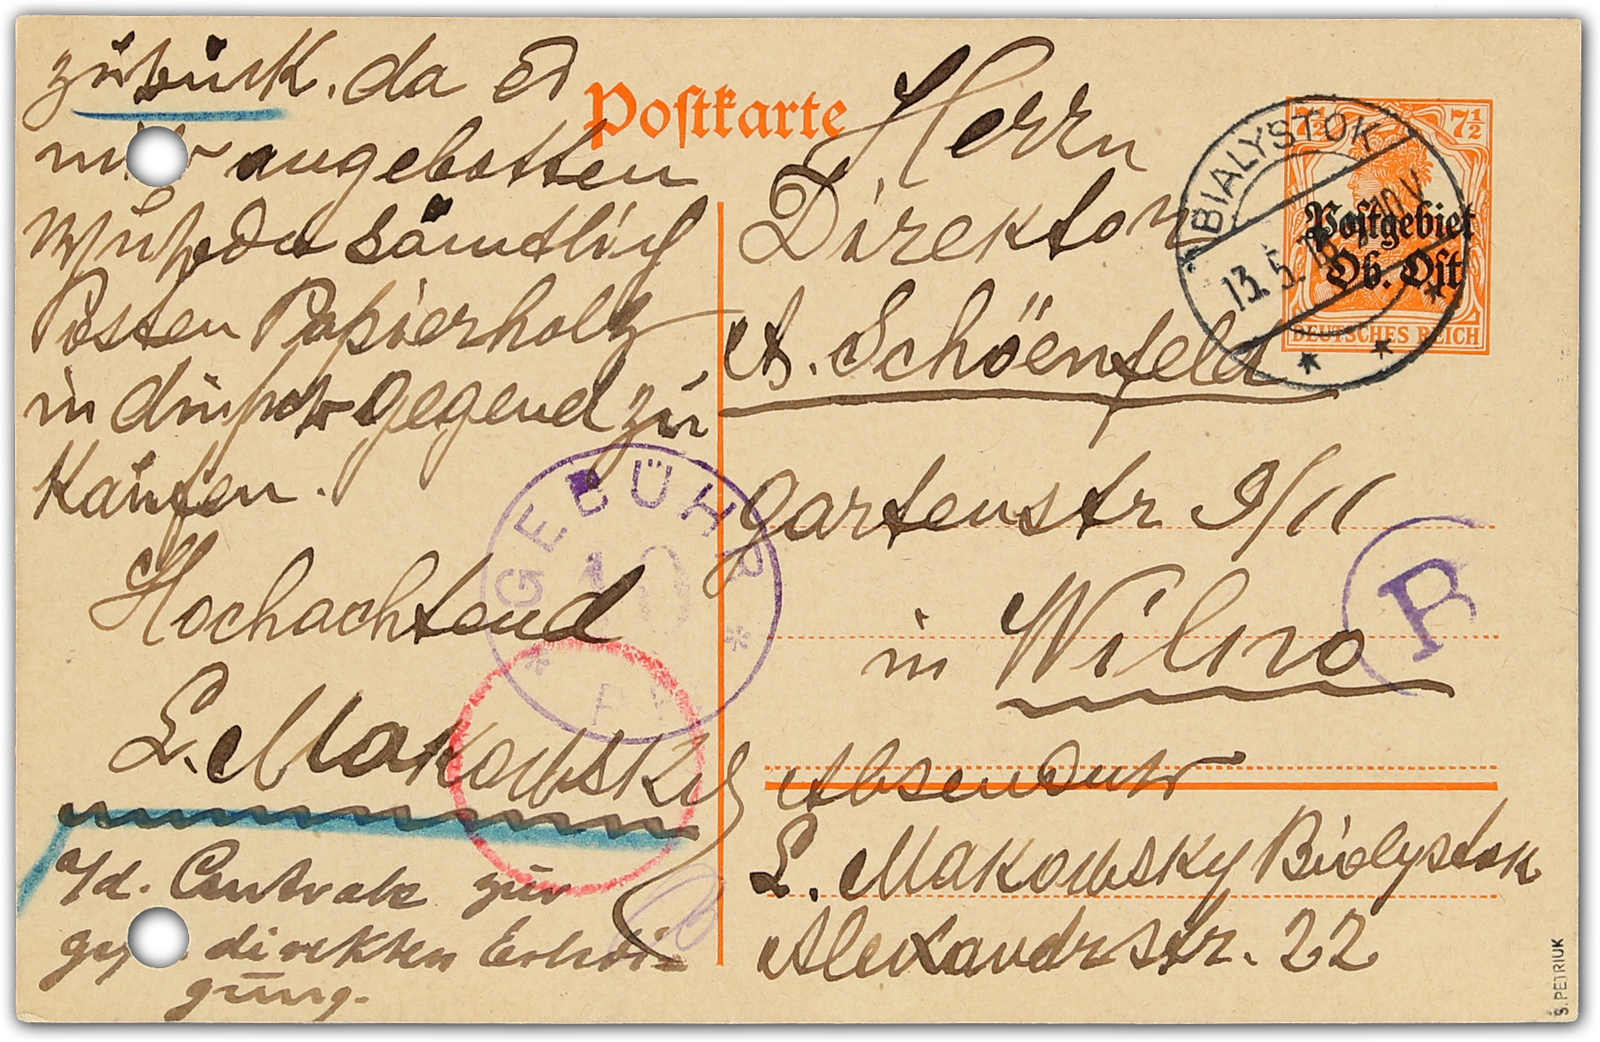 zurück, da er
mir angebotten
wurde sämtlich
Posten Papierholz
in dieser Gegend zu
Kaufen.
Hochachtend
L. Makowsky
a/d. Centrale zur
direkten Erledi-
gung.
Postkarte
Herrn
Direktor
A. Schöenfeld
Gartenstr 9/11
in Wilno
Absender
L. Makowsky Bialystok
Alexandrstr. 22
7½ 7½
DEUTSCHES REICH
Postgebiet
Ob. Ost
BIALYSTOK
13.5.18
10 V
GEBÜHR
10
Pf
B
S. PETRIUK